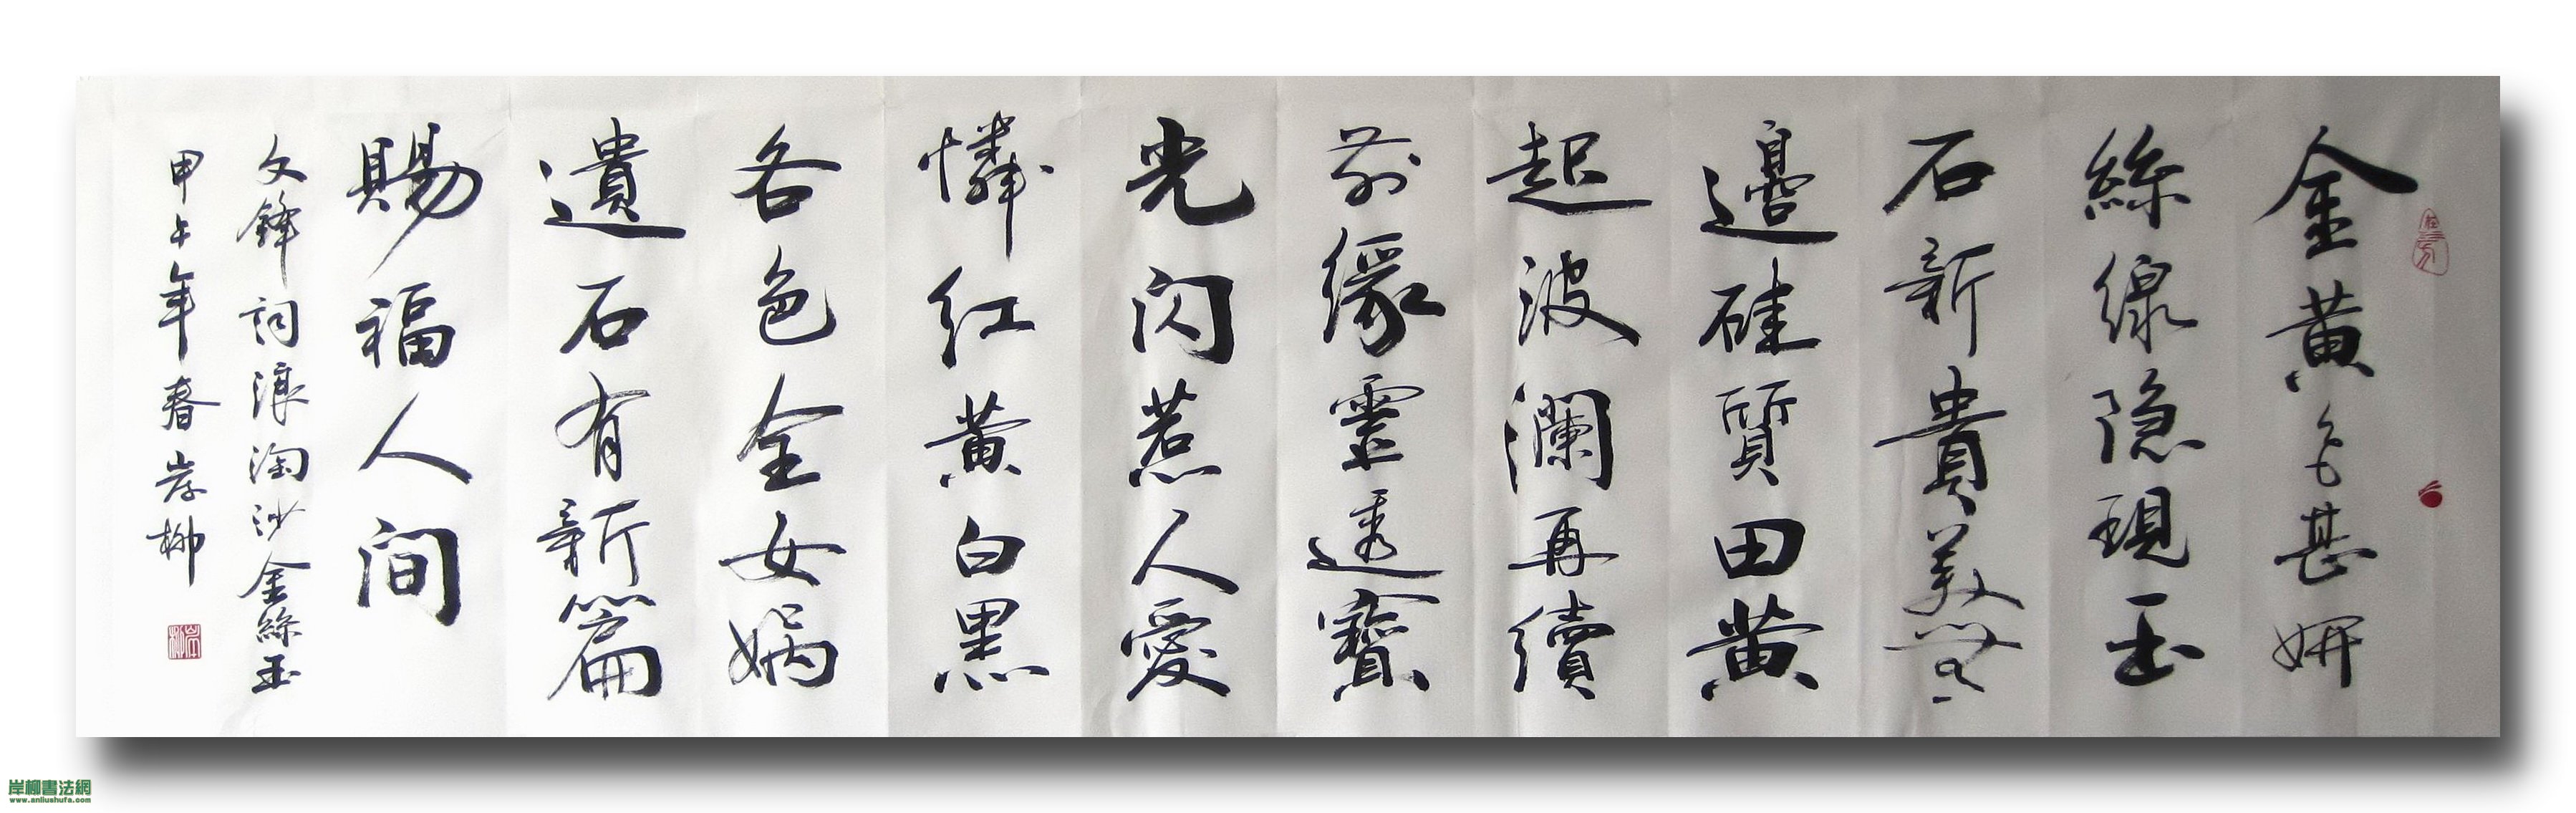 金黄色甚妍
絲線隐現玉
石新貴美無
邊硅質田黄
起波澜再續
前缘靈透寶
光闪惹人愛
憐红黄白黑
各色全女娲
遺石有新篇
賜福人间
文鋒詞浪淘沙金絲玉
甲午年春岸柳
岸柳
岸柳書法網
www.anliushufa.com